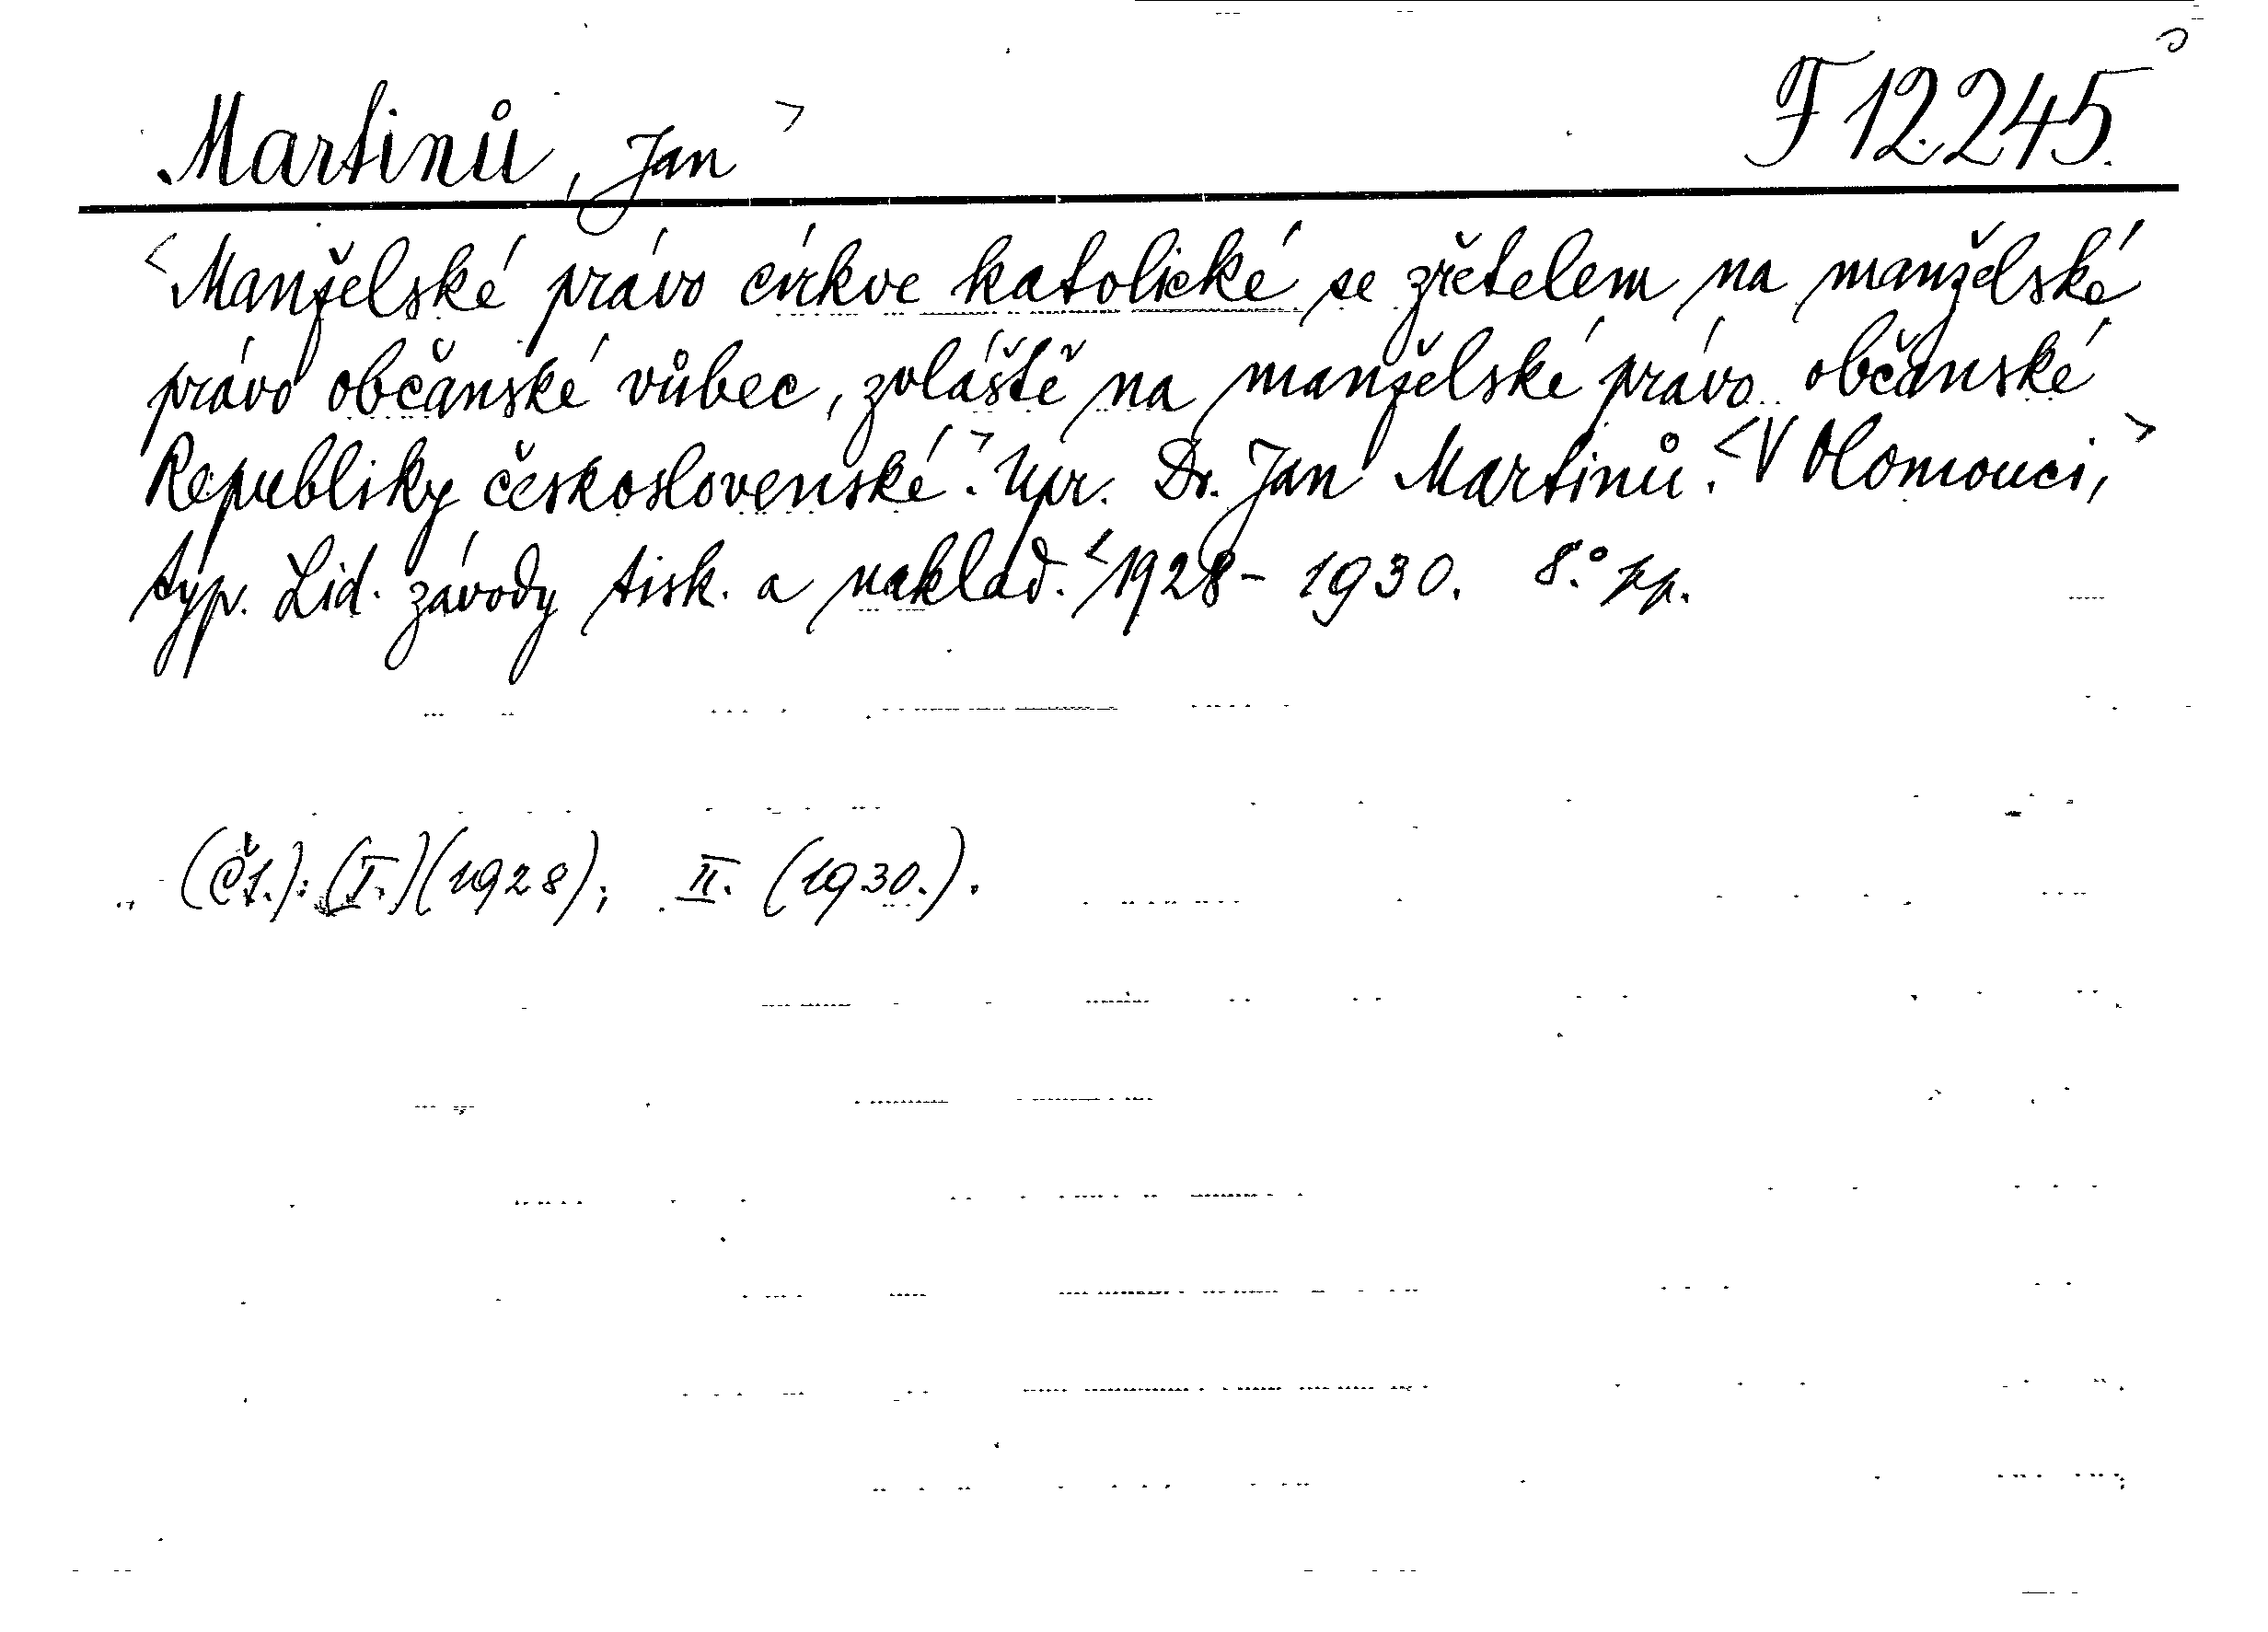 Martinů, Jan> F 12.245.
<Manželské právo církve katolické se zřetelem na manželské
právo občanské vůbec, zvláště na manželské právo občanské
Republiky československé.> Upr. Dr. Jan Martinů. <V Olomouci,>
typ. Lid. závody tisk. a naklad. <1928- 1930. 8.° pp.
(Čś.): (I.)(1928); II. (1930.).